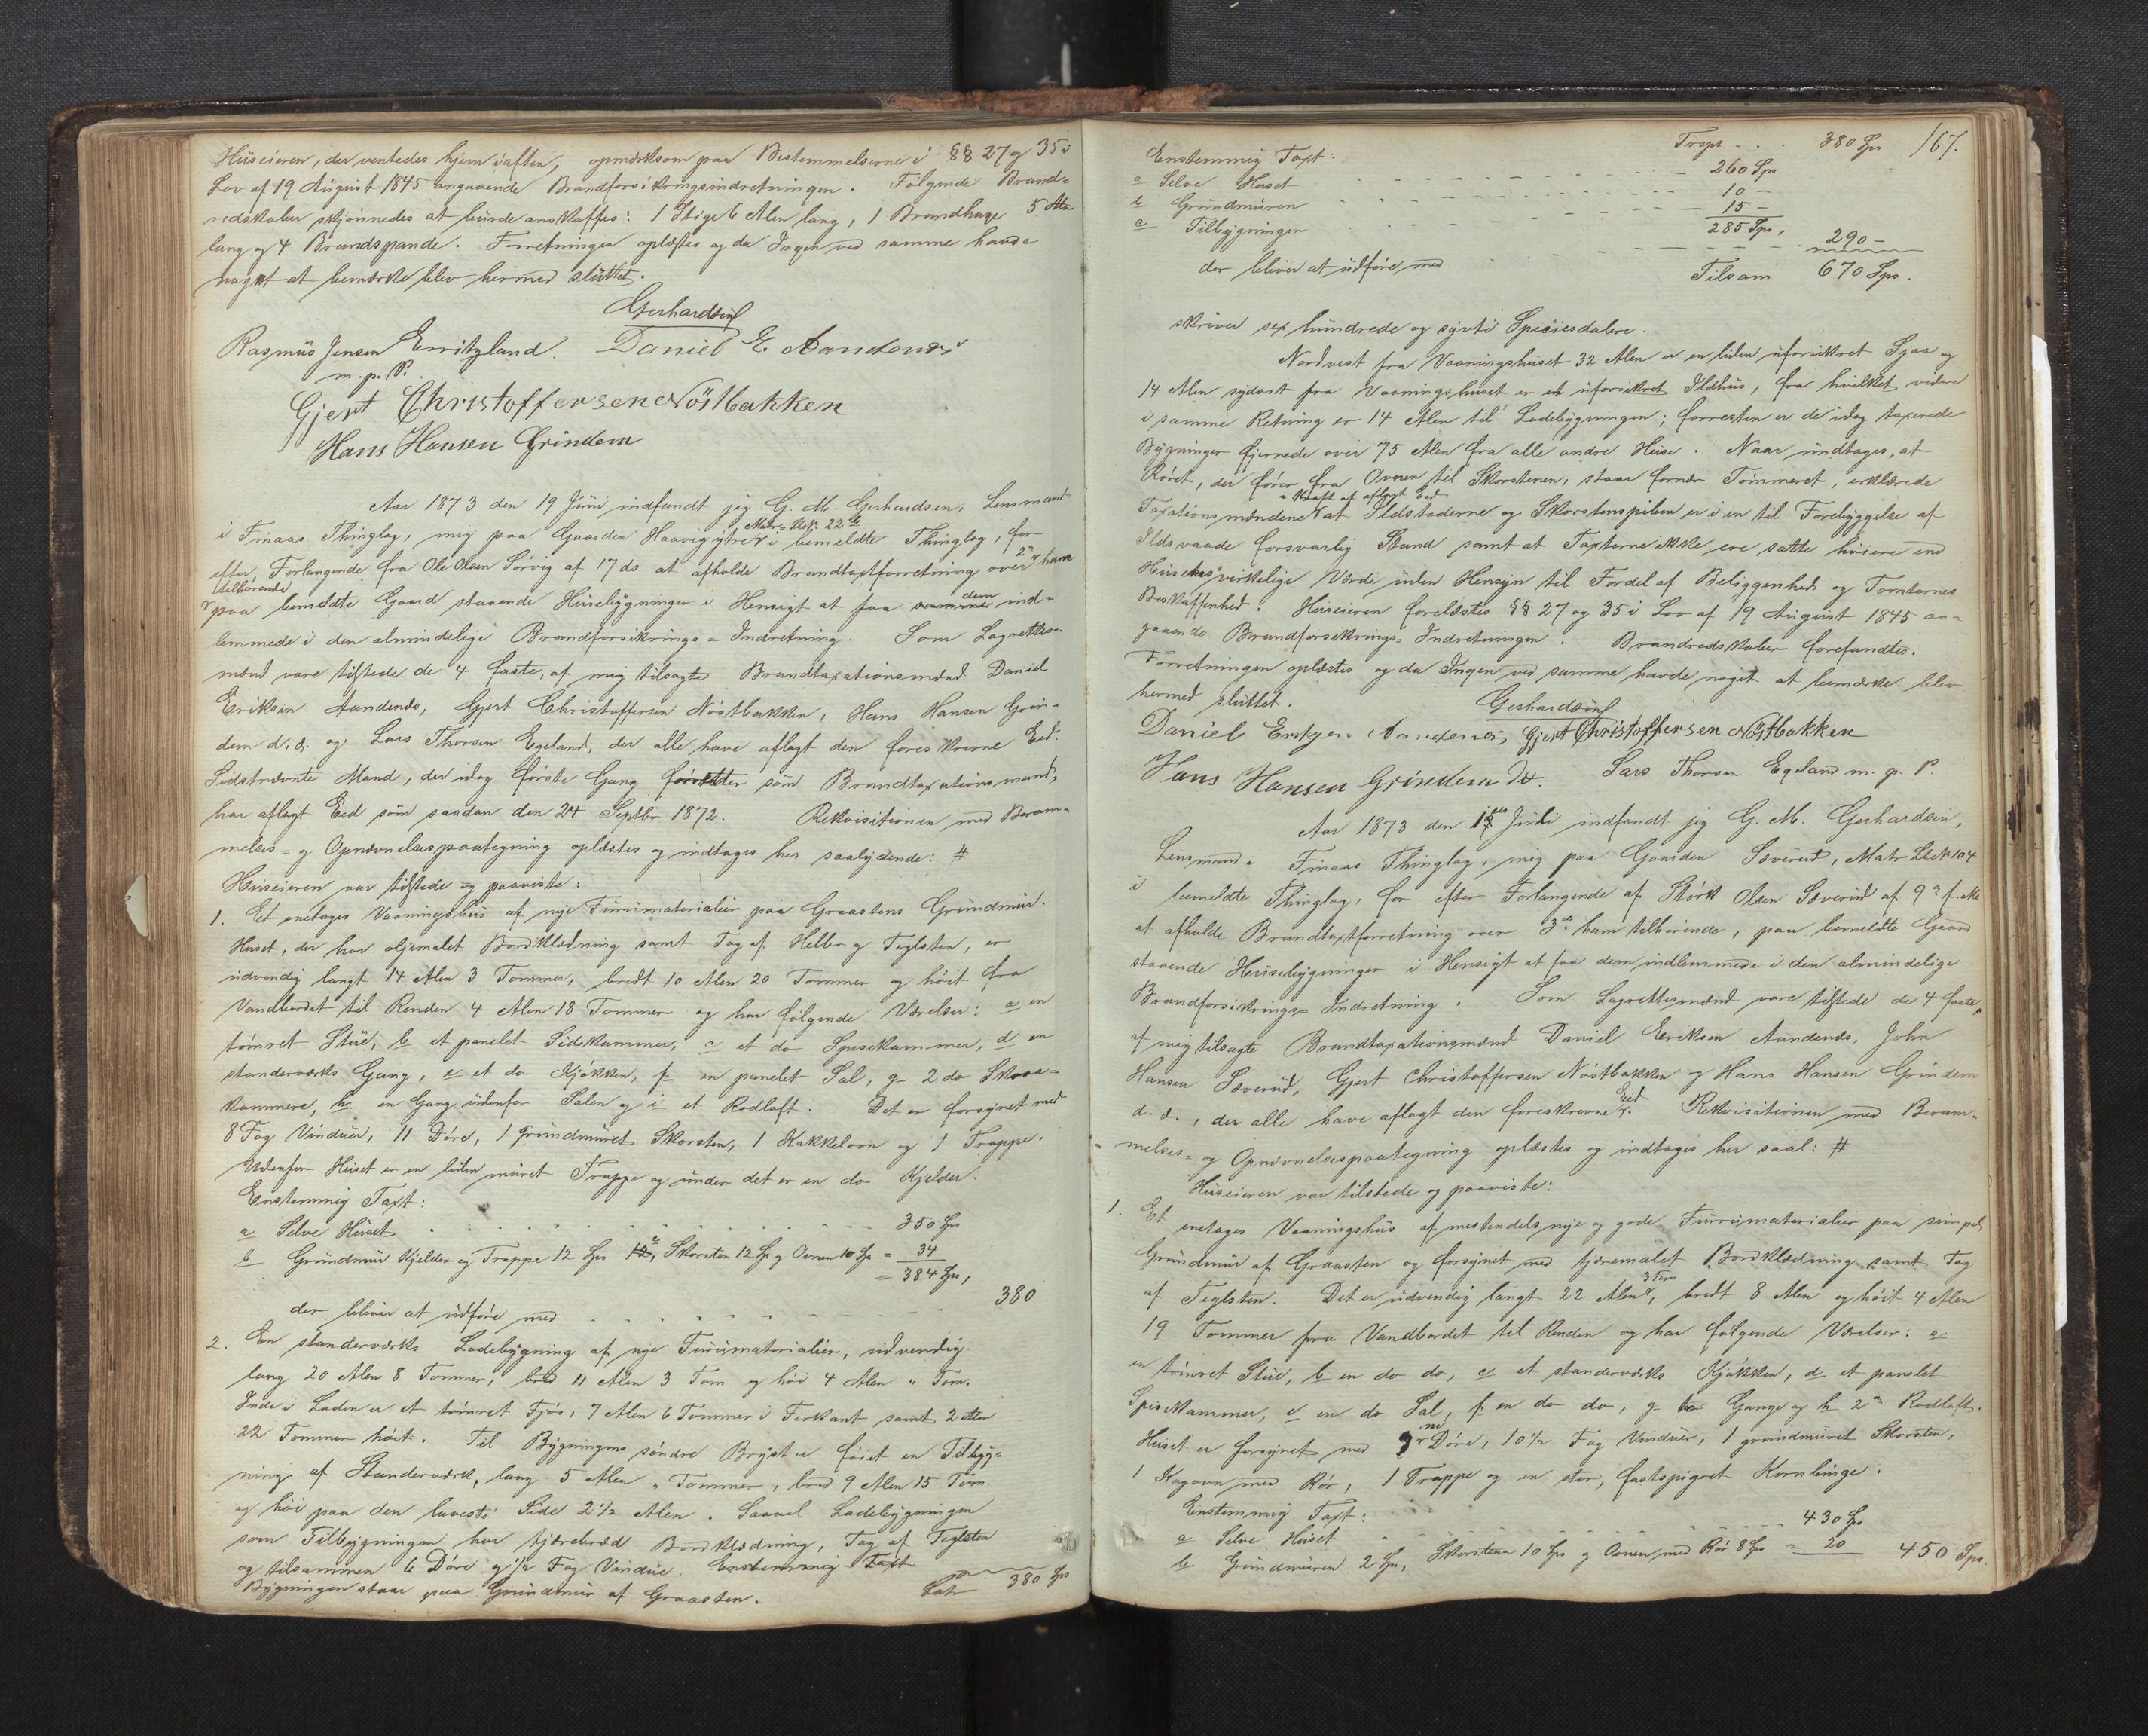 Huseieren, der ventedes hjem iaften, opmærksom paa Bestemmelserne i §§ 27 og 35 i
Lov af 19 August 1845 angaaende Brandforsikringsindretningen. Følgende Brand-
redskaber skjønnedes at burde anskaffes: 1 Stige 6 Alen lang, 1 Brandhage 5 Alen
lang og 4 Brandspande. Forretningen oplæstes og da Ingen ved samme havde
noget at bemærke blev hermed sluttet.
Gerhardsen
Rasmus Jensen Emitzland. Daniel E. Aandenes
m. p. P.
Gjert Christoffersen Nöstbakken
Hans Hansen Grindem
Aar 1873 den 19 Juni indfandt jeg G. M. Gerhardsen, Lensmand
i Finaas Thinglag, mig paa Gaarden Haavigytre, Matr. Lbnr. 22 b i bemeldte Thinglag, for
efter Forlangende fra Ole Olsen Sørvig af 17 ds at afholde Brandtaxtforretning over 2de ham
tilhørende
paa bemeldte Gaard staaende Husebygninger i Hensigt at faa samme dem ind-
lemmede i den almindelige Brandforsikrings-Indretning. Som Lagrettes-
mænd vare tilstede de 4 faste, af mig tilsagte Brandtaxationsmænd Daniel
Eriksen Aandenes, Gjert Christoffersen Nøstbakken, Hans Hansen Grin-
dem d. æ. og Lars Thorsen Egeland, der alle have aflagt den foreskrevne Eed.
Sidstnævnte Mand, der idag første Gang forretter som Brandtaxationsmand,
har aflagt Eed som saadan den 24 Septbr 1872. Rekvisitionen med Beram-
melses- og Opnævnelsespaategning oplæstes og indtages her saalydende: #
Huseieren var tilstede og paaviste:
1. Et enetages Vaaningshus af nye Furumaterialier paa Graastens Grundmur.
Huset, der har oljemalet Bordklædning samt Tag af Heller og Teglsten, er
udvendig langt 14 Alen 3 Tommer, bredt 10 Alen 20 Tommer og høit fra
Vandbordet til Renden 4 Alen 18 Tommer og har følgende Værelser: a en
tømret Stue, b et panelet Sidekammer, c et do Spisekammer, d en
standerværks Gang, e et do Kjøkken, f en panelet Sal, g 2 do Skraa-
kammere, h en Gang udenfor Salen og i et Rodloft. Det er forsynet med
8 Fag Vinduer, 11 Døre, 1 grundmuret Skorsten, 1 Kakkelovn og 1 Trappe.
Udenfor Huset er en liden muret Trappe og under det er en do Kjelder.
Enstemmig Taxt:
a Selve Huset 350 Spd
b Grundmur Kjelder og Trappe 12 Spd, c Skorsten 12 Spd og Ovnen 10 Spd = 34
= 384 Spd,
der bliver at udføre med 380
2. En standerværks Ladebygning af nye Furumaterialier, udvendig
lang 20 Alen 8 Tommer, bred 11 Alen 3 Tom og høi 4 Alen " Tom.
Inde i Laden er et tømret Fjøs, 7 Alen 6 Tommer i Firkant samt 2 Alen
22 Tommer høit. Til Bygningens søndre Bryst er føiet en Tilbyg-
ning af Standerværk, lang 5 Alen " Tommer, bred 9 Alen 15 Tom.
og høi paa den laveste Side 2 1/2 Alen. Saavel Ladebygningen
som Tilbygningen har tjærebræd Bordklædning, Tag af Teglsten
og tilsammen 6 Døre og 1/2 Fag Vindue. Enstemmig Taxt
Bygningen staar paa Grundmur af Graasten.
Latr 380 Spd
167.
Trsp. . . 380 Spd
Enstemmig Taxt:
a Selve Huset 260 Spd
b Grundmuren 10 -
c Tilbygningen 15 -
285 Spd,
der bliver at udføre med 290 -
Tilsam 670 Spd.
skriver sex hundrede og sytti Speciesdalere.
Nordvest fra Vaaningshuset 32 Alen er en liden uforsikret Sjaa og
14 Alen sydost fra Vaaningshuset er et uforsikret Ildhus, fra hvilket videre
i samme Retning er 14 Alen til Ladebygningen; forresten er de idag taxerede
Bygninger fjernede over 75 Alen fra alle andre Huse. Naar undtages, at
Røret, der fører fra Ovnen til Skorstenen, staar fornær Tømmeret, erklærede
Taxationsmændene i Kraft af aflagt Eed at Ildstederne og Skorstenspiben er i en til Forebyggelse af
Ildsvaade forsvarlig Stand samt at Taxterne ikke ere satte høiere end
Husenes virkelige Værdi uden Hensyn til Fordel af Beliggenhed og Tomternes
Beskaffenhed. Huseieren forelæstes §§ 27 og 35 i Lov af 19 August 1845 an-
gaaende Brandforsikrings-Indretningen. Brandredskaber forefandtes.
Forretningen oplæstes og da Ingen ved samme havde noget at bemærke blev
hermed sluttet.
Gerhardsen
Daniel Eriksen Aandenes, Gjert Christoffersen Nöstbakken
Hans Hansen Grindem d æ. Lars Thorsen Egeland m. p. P.
Aar 1873 den Juli indfandt jeg G. M. Gerhardsen,
Lensmand i Finaas Thinglag, mig paa Gaarden Sæverud, Matr. Lbnr 104
i bemeldte Thinglag, for efter Forlangende af Størk Olsen Sæverud af 9de f. Mts
at afholde Brandtaxtforretning over 3de ham tilhørende, paa bemeldte Gaard
staaende Husebygninger i Hensigt at faa dem indlemmede i den almindelige
Brandforsikrings-Indretning. Som Lagrettesmænd vare tilstede de 4 faste,
af mig tilsagte Brandtaxationsmænd Daniel Eriksen Aandenes, John
Hansen Sæverud, Gjert Christoffersen Nøstbakken og Hans Hansen Grindem
d. æ., der alle have aflagt den foreskrevne Eed. Rekvisitionen med Beram-
melses- og Opnævnelsespaategning oplæstes og indtages her saal: #
Huseieren var tilstede og paaviste:
1. Et enetages Vaaningshus af mestendels nye og gode Furumaterialier paa simpel
Grundmur af Graasten og forsynet med tjæremalet Bordklædning samt Tag
af Teglsten. Det er udvendig langt 22 Alen 3 Tom, bredt 8 Alen og høit 4 Alen
19 Tommer fra Vandbordet til Renden og har følgende Værelser: a
en tømret Stue, b en do do, c et standerværks Kjøkken, d et panelet
Spisekammer, e en do Sal, f en do do, g to Gange og h 2de Rodloft.
Huset er forsynet med ni Døre, 10 1/2 Fag Vinduer, 1 grundmuret Skorsten,
1 Kagovn med Rør, 1 Trappe og en stor, fastspigret Kornbinge.
Enstemmig Taxt:
a Selve Huset 430 Spd
b Grundmuren 2 Spd, Skorsten 10 Spd og Ovnen med Rør 8 Spd = 20 450 Spd.